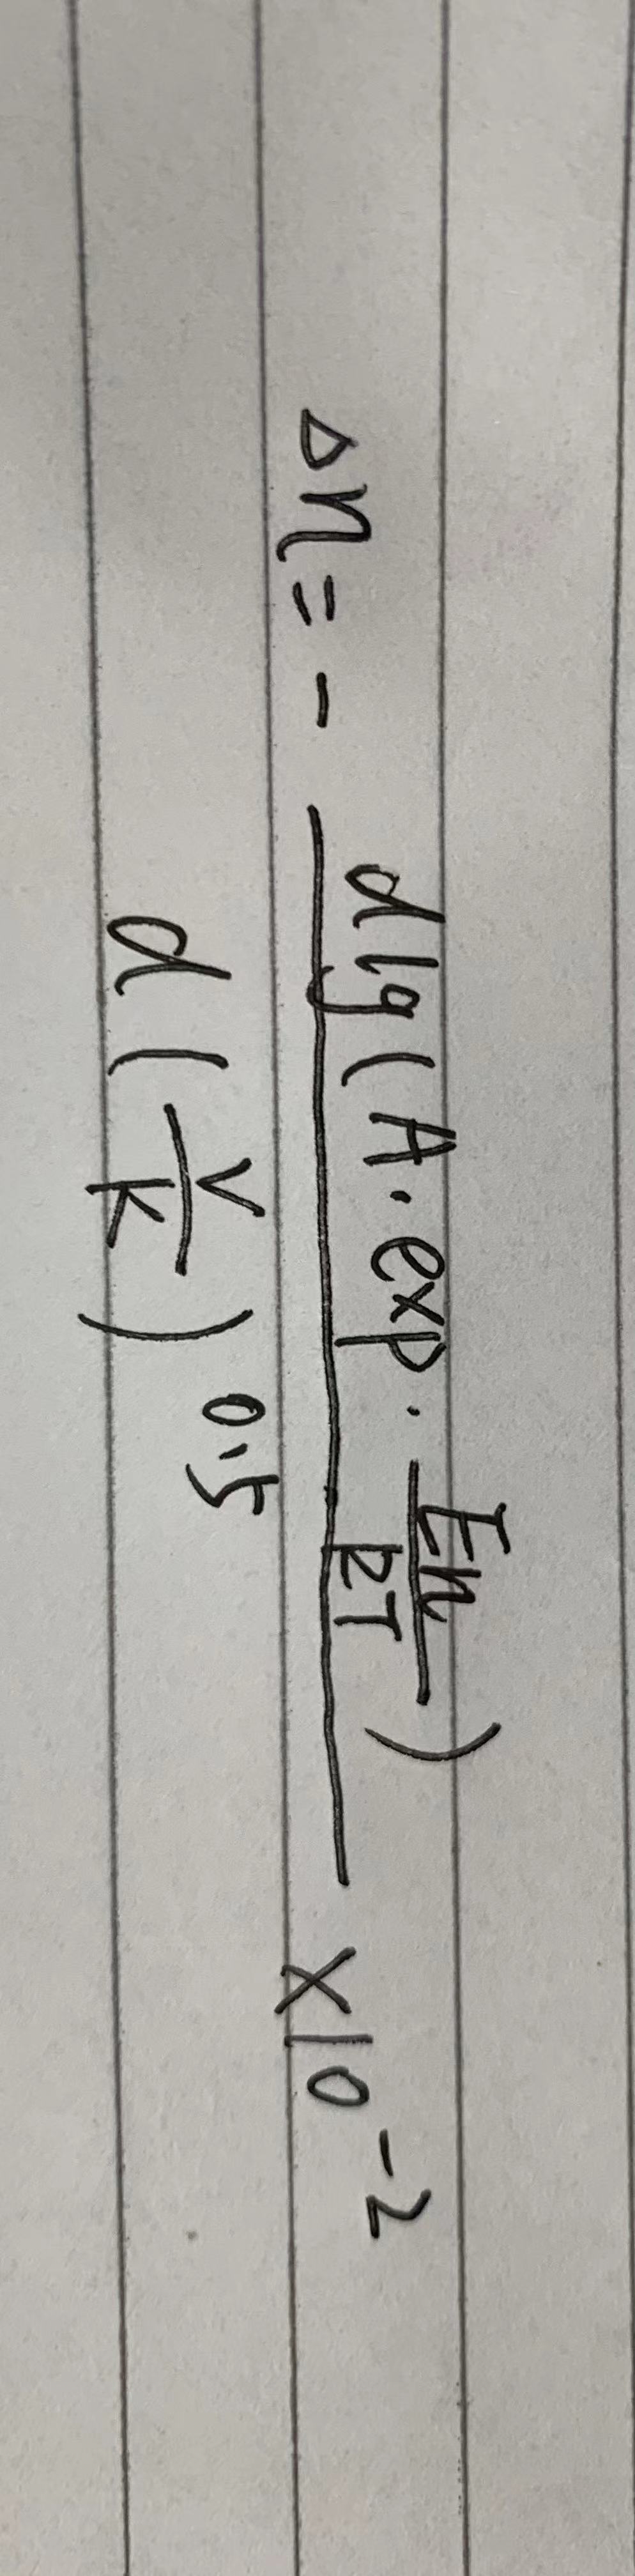 Δη = - \frac{d lg(A \cdot exp \cdot \frac{En}{kT})}{d(\frac{V}{K})^{0.5}} × 10^{-2}